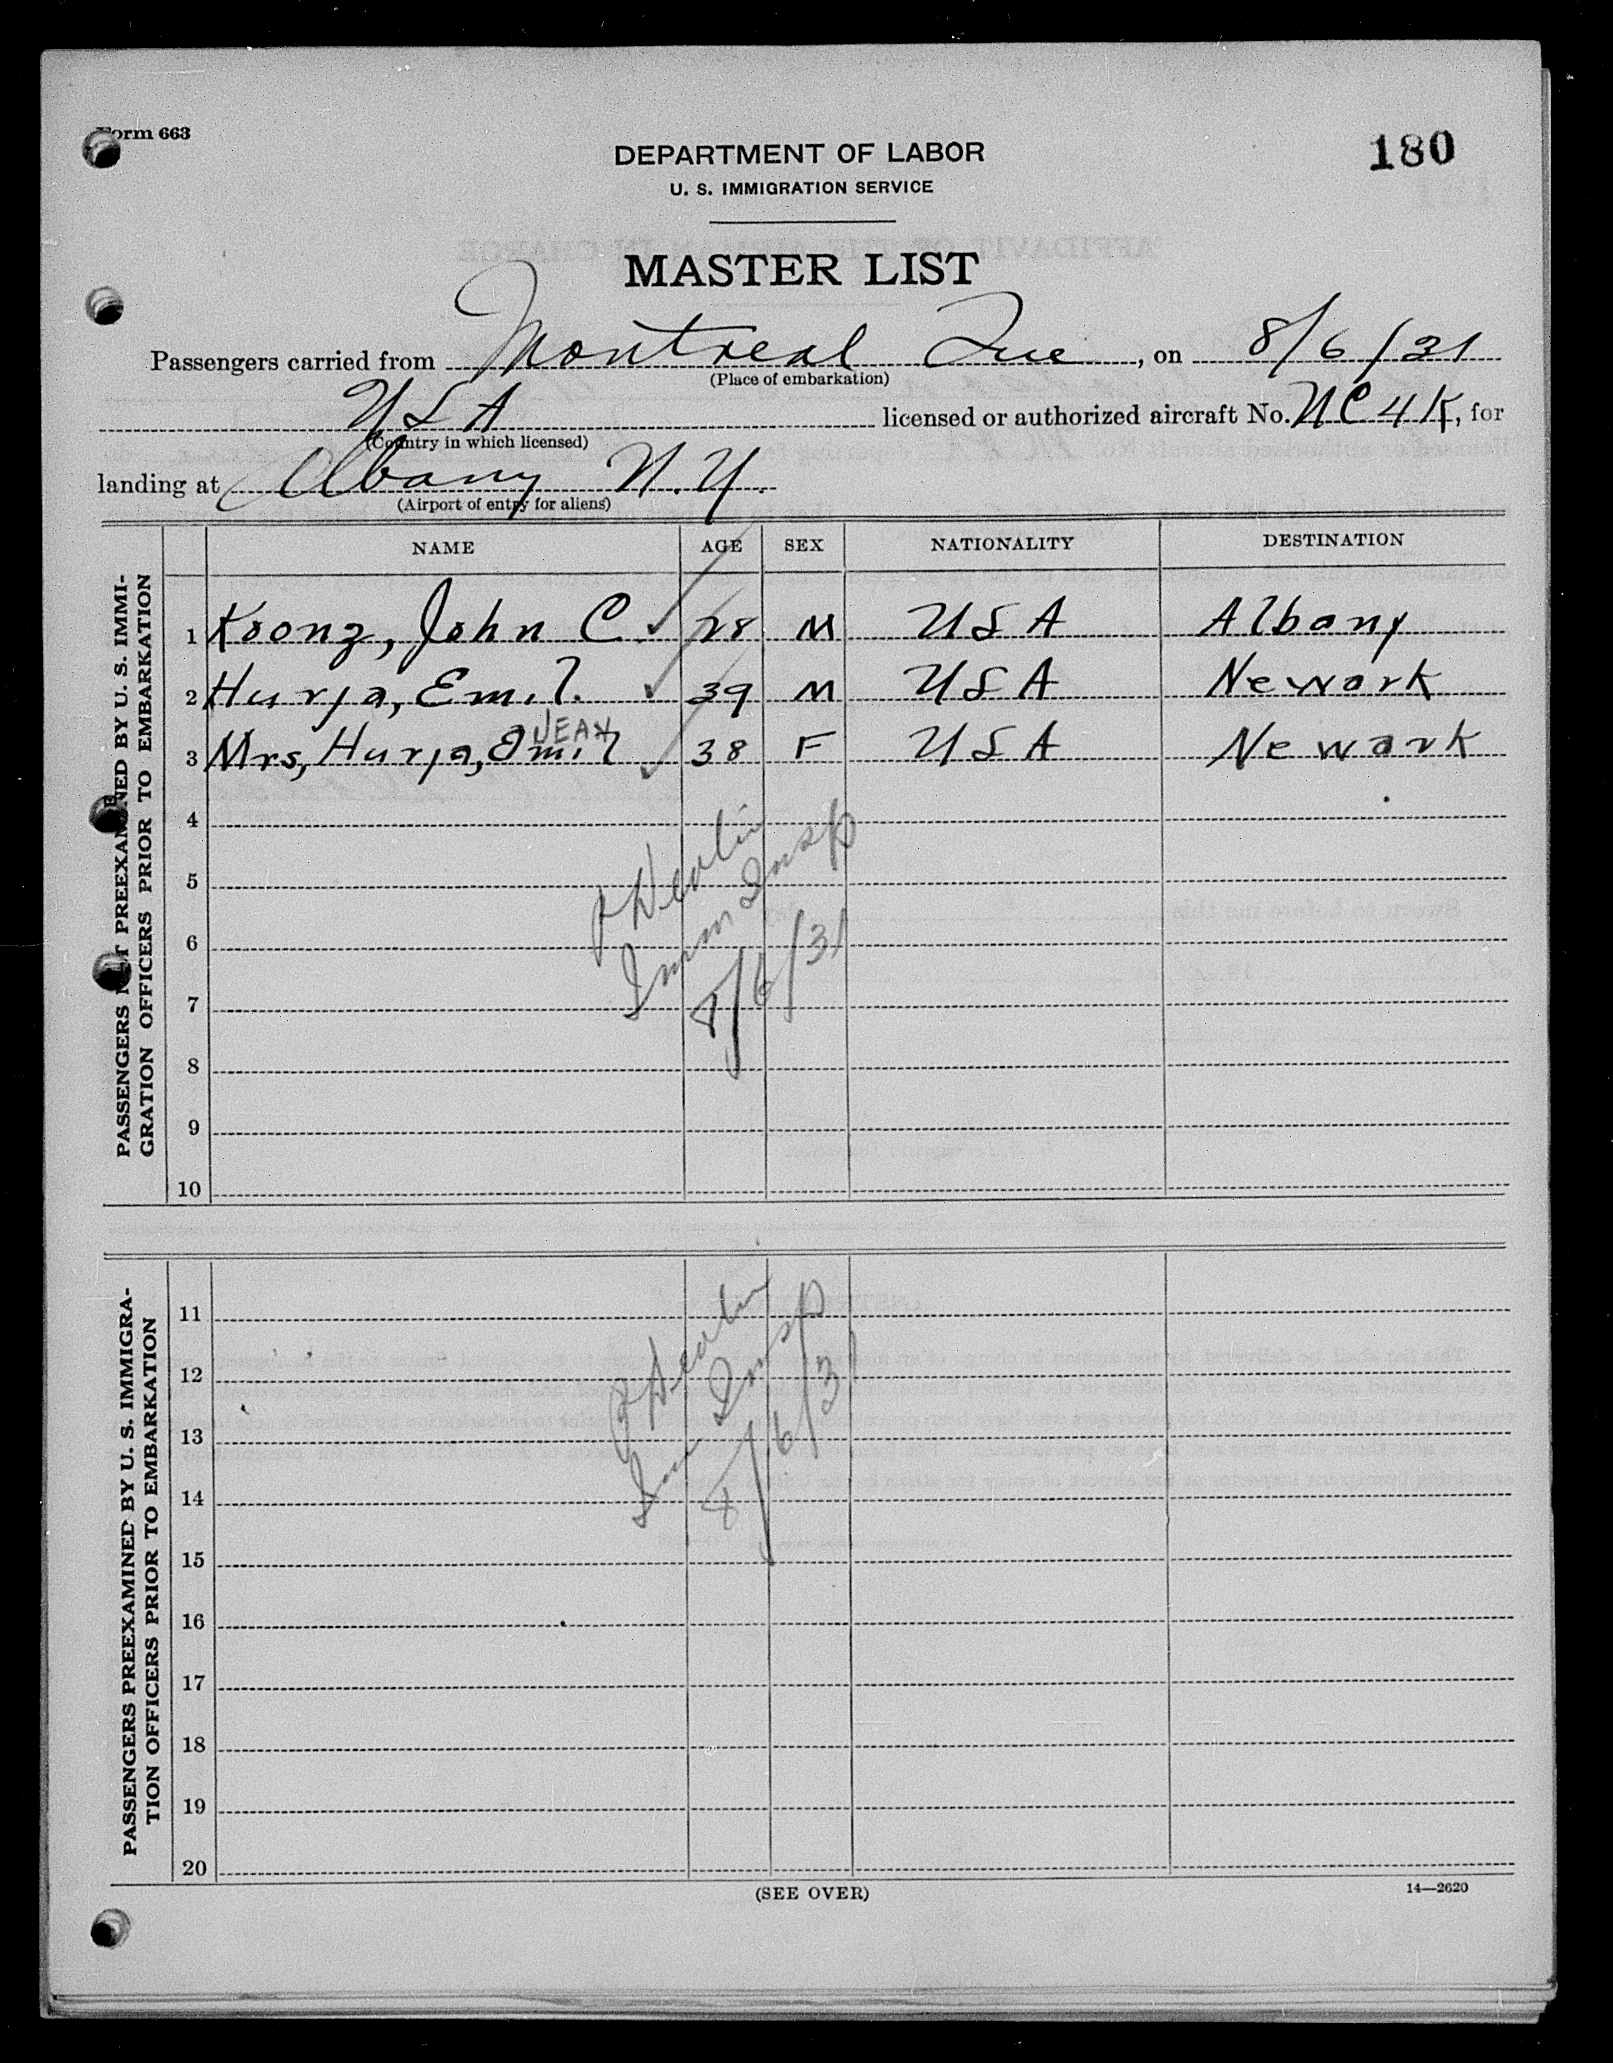 Form 663
180
DEPARTMENT OF LABOR
U. S. IMMIGRATION SERVICE
MASTER LIST
Passengers carried from Montreal Que, on 8/6/31
(Place of embarkation)
USA licensed or authorized aircraft No. NC4K, for
(Country in which licensed)
landing at Albany N.Y.
(Airport of entry for aliens)
NAME AGE SEX NATIONALITY DESTINATION
PASSENGERS NOT PREEXAMINED BY U. S. IMMI-
GRATION OFFICERS PRIOR TO EMBARKATION
1 Koonz, John C. 28 M USA Albany
2 Hurja, Emil. 39 M USA Newark
JEAN
3 Mrs, Hurja, Emil 38 F USA Newark
4
5
6
7
8
9
10
J Devlin
Imm Insp
8/6/31
PASSENGERS PREEXAMINED BY U. S. IMMIGRA-
TION OFFICERS PRIOR TO EMBARKATION
11
12
13
14
15
16
17
18
19
20
J Devlin
Imm Insp
8/6/31
(SEE OVER)
14—2620